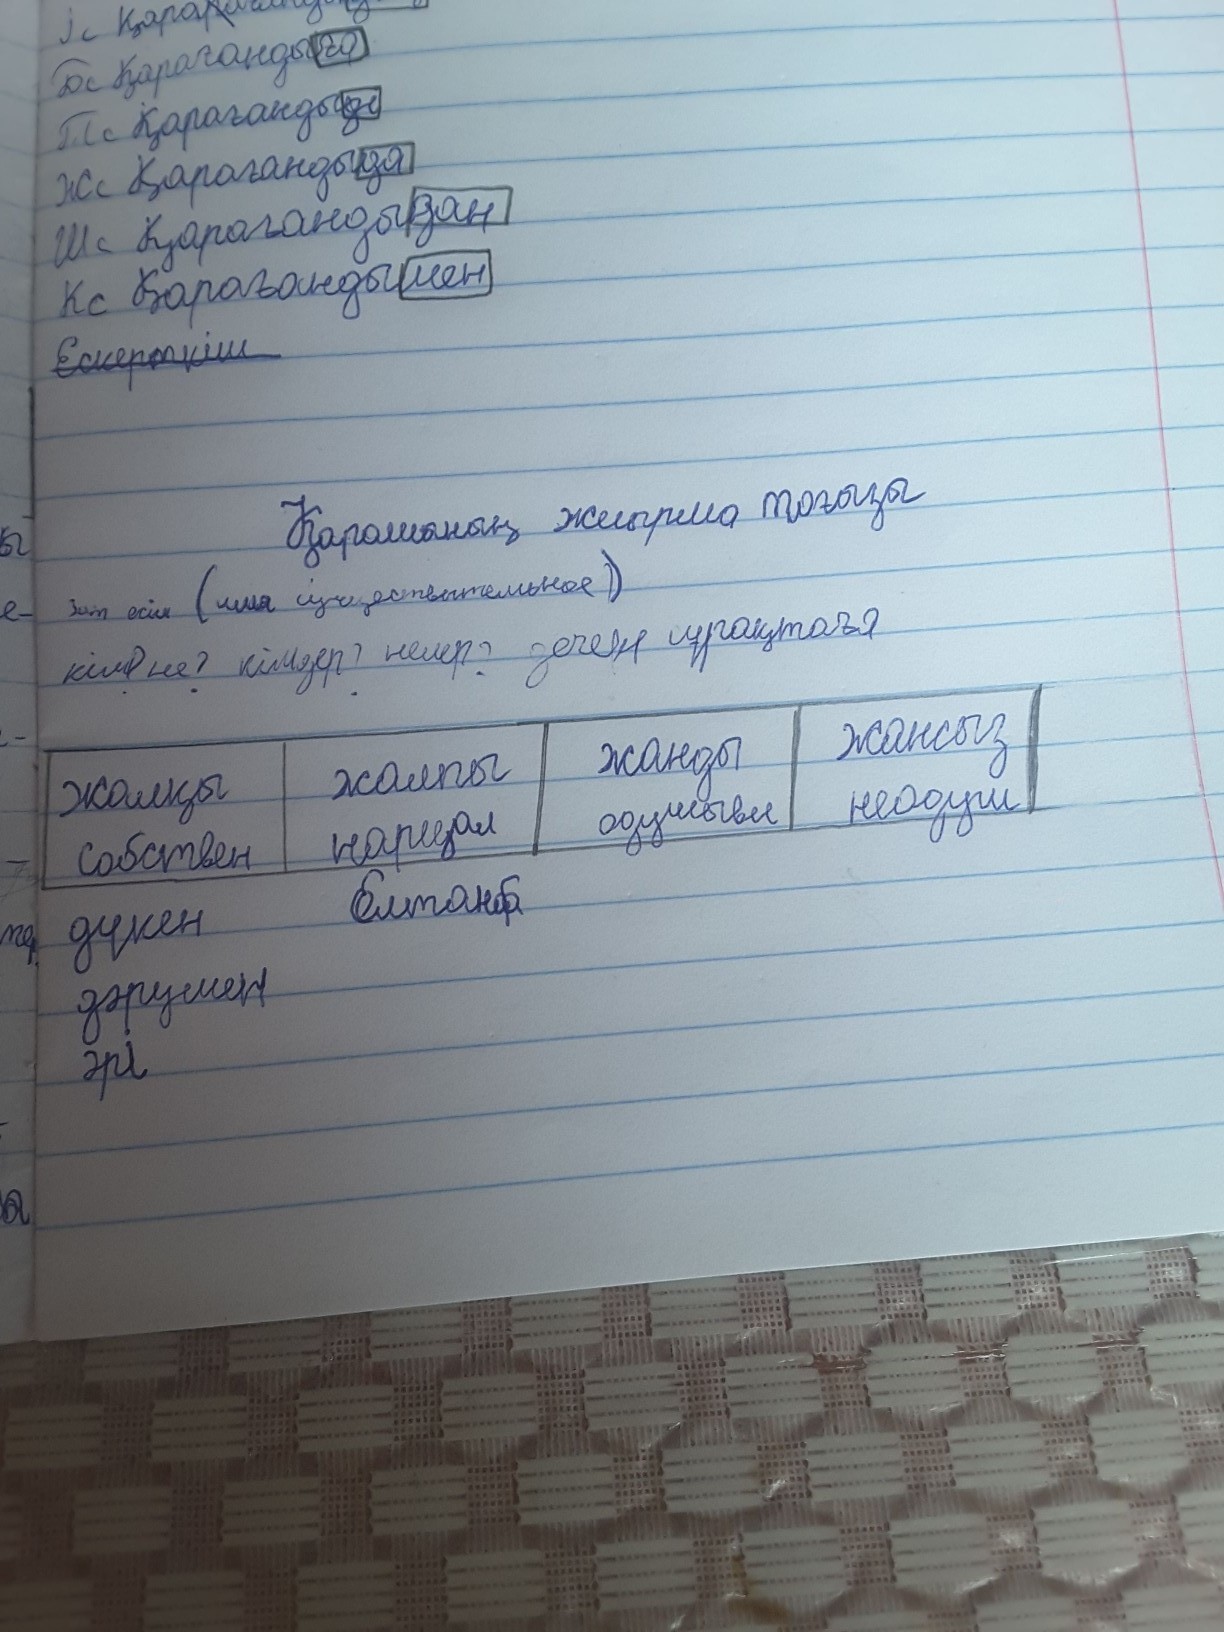 Іс Қарағанды
Бс Қарағандыға
Тс Қарағандыды
Жс Қарағандыда
Шс Қарағандыдан
Кс Қарағандымен
Ескерткіш
Қарашаның жиырма тоғызы
Зат есім (имя существительное)
кім? не? кімдер? нелер? деген сұрақтаға
жалқы жалпы жанды жансыз
собствен нарицал одушывл неодуш
дүкен Елтанба
дәрумен
әрі